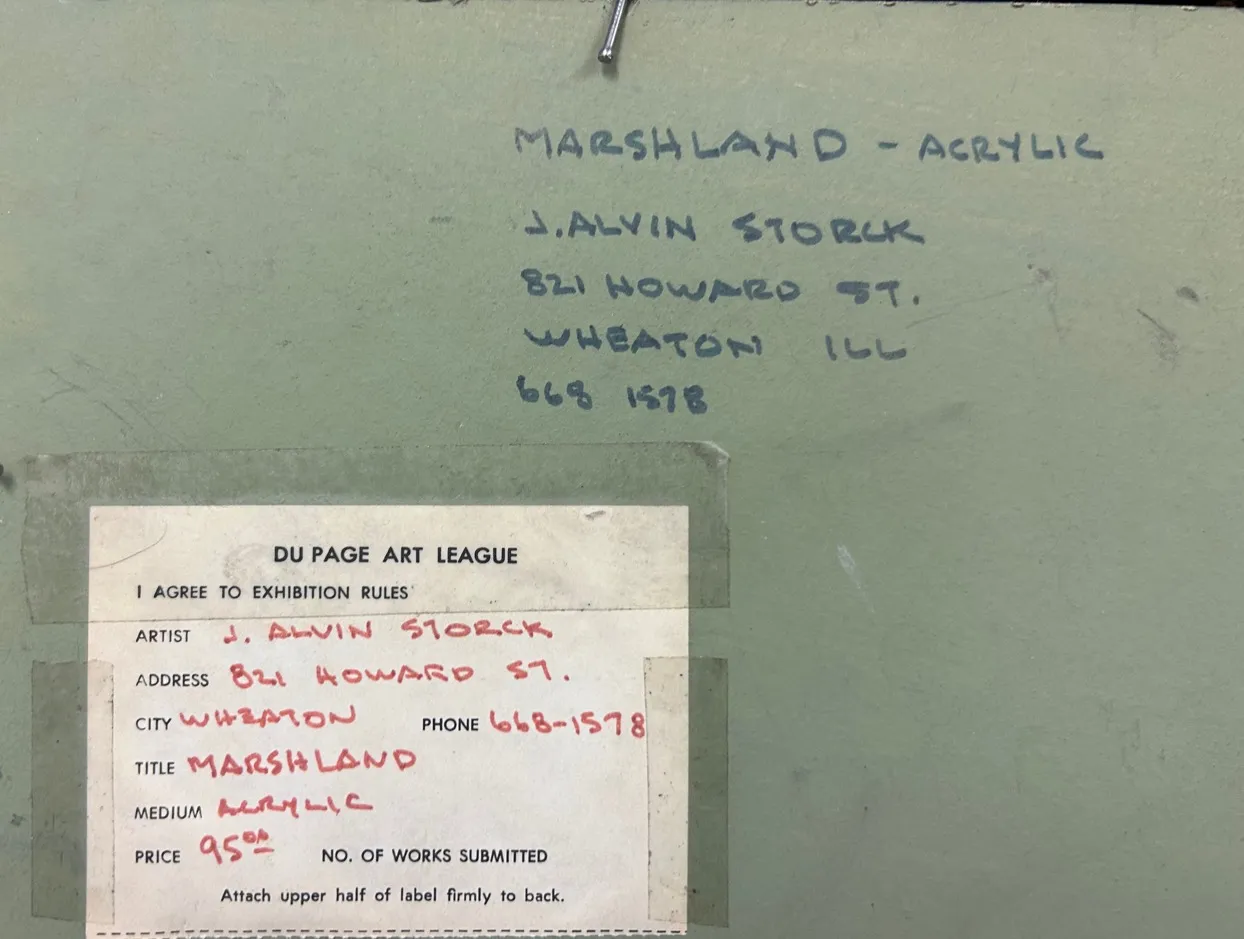 MARSHLAND - ACRYLIC
J. ALVIN STORCK
821 HOWARD ST.
WHEATON ILL
668 1578
DU PAGE ART LEAGUE
I AGREE TO EXHIBITION RULES
ARTIST J. ALVIN STORCK
ADDRESS 821 HOWARD ST.
CITY WHEATON PHONE 668-1578
TITLE MARSHLAND
MEDIUM ACRYLIC
PRICE 9500 NO. OF WORKS SUBMITTED
Attach upper half of label firmly to back.